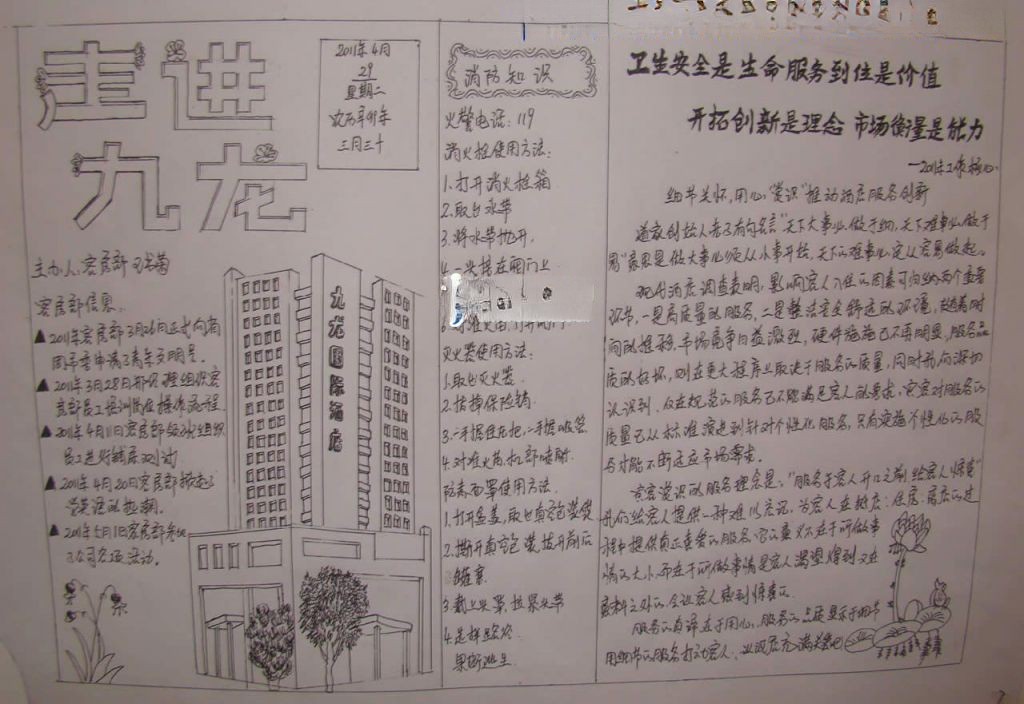 走进
九龙
2011年4月
29
星期二
农历辛卯年
三月三十
主办人:客房部
客房部信息:
▲2011年客房部3月26日正式向省
团委申请了青年文明号。
▲2011年3月28日开始
部员工培训岗位操作流程。
▲2011年4月11日客房部
员工进行铺床测动
▲2011年4月20日客房部掀起了
赏识的热潮。
▲2011年5月1日客房部
公司各项活动。
九龙国际酒店
消防知识
火警电话:119
消火栓使用方法:
1.打开消火栓箱
2.取出水带
3.将水带抛开,
4.一头接在阀门上
灭火器使用方法:
1.取出灭火器
2.拔掉保险销
3.一手握住压把,一手握喷管
4.对准火苗根部喷射
防毒面罩使用方法:
1.打开盒盖,取出真空包装袋
2.撕开真空包装,拔开前后
罐塞
3.戴上头罩,拉紧头带
4.选择路径
果断逃生
卫生安全是生命 服务到位是价值
开拓创新是理念 市场衡量是能力
—2011年工作核心
细节关怀,用心"赏识"推动酒店服务创新
道家创始人老子有句名言"天下大事必做于细,天下难事必做于
易"意思是做大事必须从小事开始,天下的难事必定从容易做起。
现代酒店调查表明,影响客人入住的因素可归纳两个重要
环节,一是高质量的服务,二是整洁安全舒适的环境,随着时
间的推移,市场竞争日益激烈,硬件设施已不再明显,服务品
质的好坏,则在更大程度上取决于服务的质量,同时我们深切
认识到,仅在规范的服务已不能满足客人的要求,宾客对服务的
质量已从标准演进到针对个性化服务,只有实施个性化的服
务才能不断适应市场需求。
宾客赏识的服务理念是:"服务于客人开口之前给客人惊喜"
我们给客人提供一种难以忘记,为客人在抵店、住店、离店的过
程中提供真正喜爱的服务,它的意义不在于所做事
情的大小,而在于所做事情是客人渴望得到又在
意料之外的,会让客人感到惊喜的
服务的真谛在于用心,服务的品质显示于细节
用细节的服务打动客人,